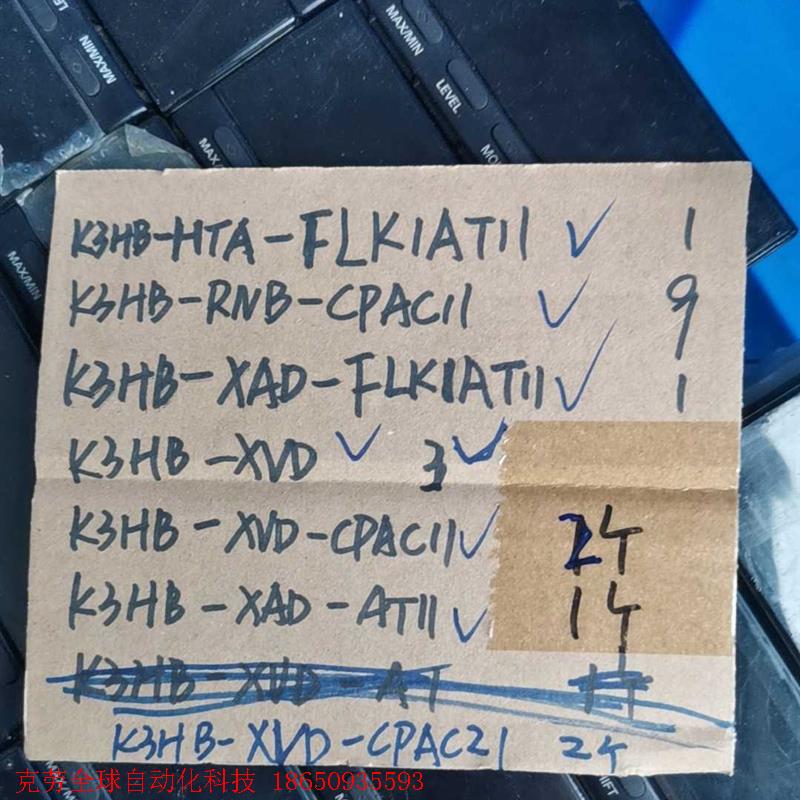 MAX/MIN
LE
MAX/MIN
LEVEL
MAX
MAX/MIN
K3HB-HTA-FLK1AT11 ✓ 1
K3HB-RNB-CPAC11 ✓ 9
K3HB-XAD-FLK1AT11 ✓ 1
K3HB-XVD ✓ 3 ✓
K3HB-XVD-CPAC11 ✓ 2个
K3HB-XAD-AT11 ✓ 1个
K3HB-XVD-AT
K3HB-XVD-CPAC21 2个
克劳全球自动化科技 18650935593
MAX/MIN